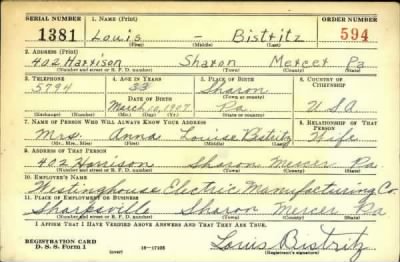 SERIAL NUMBER 1. NAME (Print) ORDER NUMBER
1381 Louis - Bistritz 594
(First) (Middle) (Last)
2. ADDRESS (Print)
402 Harrison Sharon Mercer Pa
(Number and street or R. F. D. number) (Town) (County) (State)
3. TELEPHONE 4. AGE IN YEARS 5. PLACE OF BIRTH 6. COUNTRY OF CITIZENSHIP
5794 33 Sharon
DATE OF BIRTH (Town or county)
March 10, 1907 Pa USA
(Exchange) (Number) (Mo.) (Day) (Yr.) (State or country)
7. NAME OF PERSON WHO WILL ALWAYS KNOW YOUR ADDRESS 8. RELATIONSHIP OF THAT PERSON
Mrs. Anna Louise Bistritz Wife
(Mr., Mrs., Miss) (First) (Middle) (Last)
9. ADDRESS OF THAT PERSON
402 Harrison Sharon Mercer Pa
(Number and street or R. F. D. number) (Town) (County) (State)
10. EMPLOYER'S NAME
Westinghouse Electric Manufacturing Co.
11. PLACE OF EMPLOYMENT OR BUSINESS
Sharpsville Sharon Mercer Pa
(Number and street or R. F. D. number) (Town) (County) (State)
I AFFIRM THAT I HAVE VERIFIED ABOVE ANSWERS AND THAT THEY ARE TRUE.
REGISTRATION CARD
D. S. S. Form 1 (over) Louis Bistritz
(Registrant's signature)